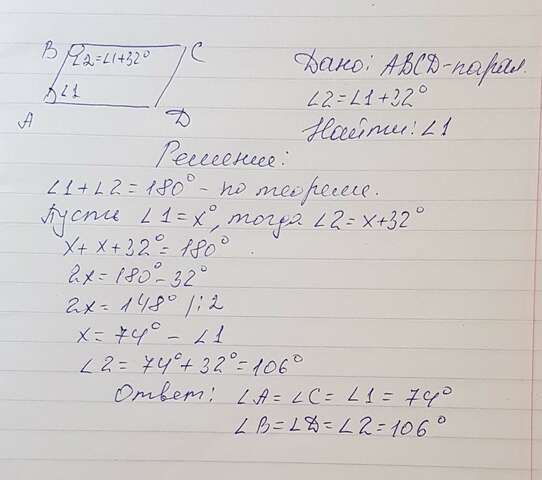 B ∠2=∠1+32° C
∠1
A D
Дано: ABCD-парал.
∠2=∠1+32°
Найти: ∠1
Решение:
∠1+∠2=180° - по теореме.
Пусть ∠1=x°, тогда ∠2=x+32°
x+x+32°=180°.
2x=180°-32°
2x=148° /:2
x=74° - ∠1
∠2=74°+32°=106°
Ответ: ∠A=∠C=∠1=74°
∠B=∠D=∠2=106°